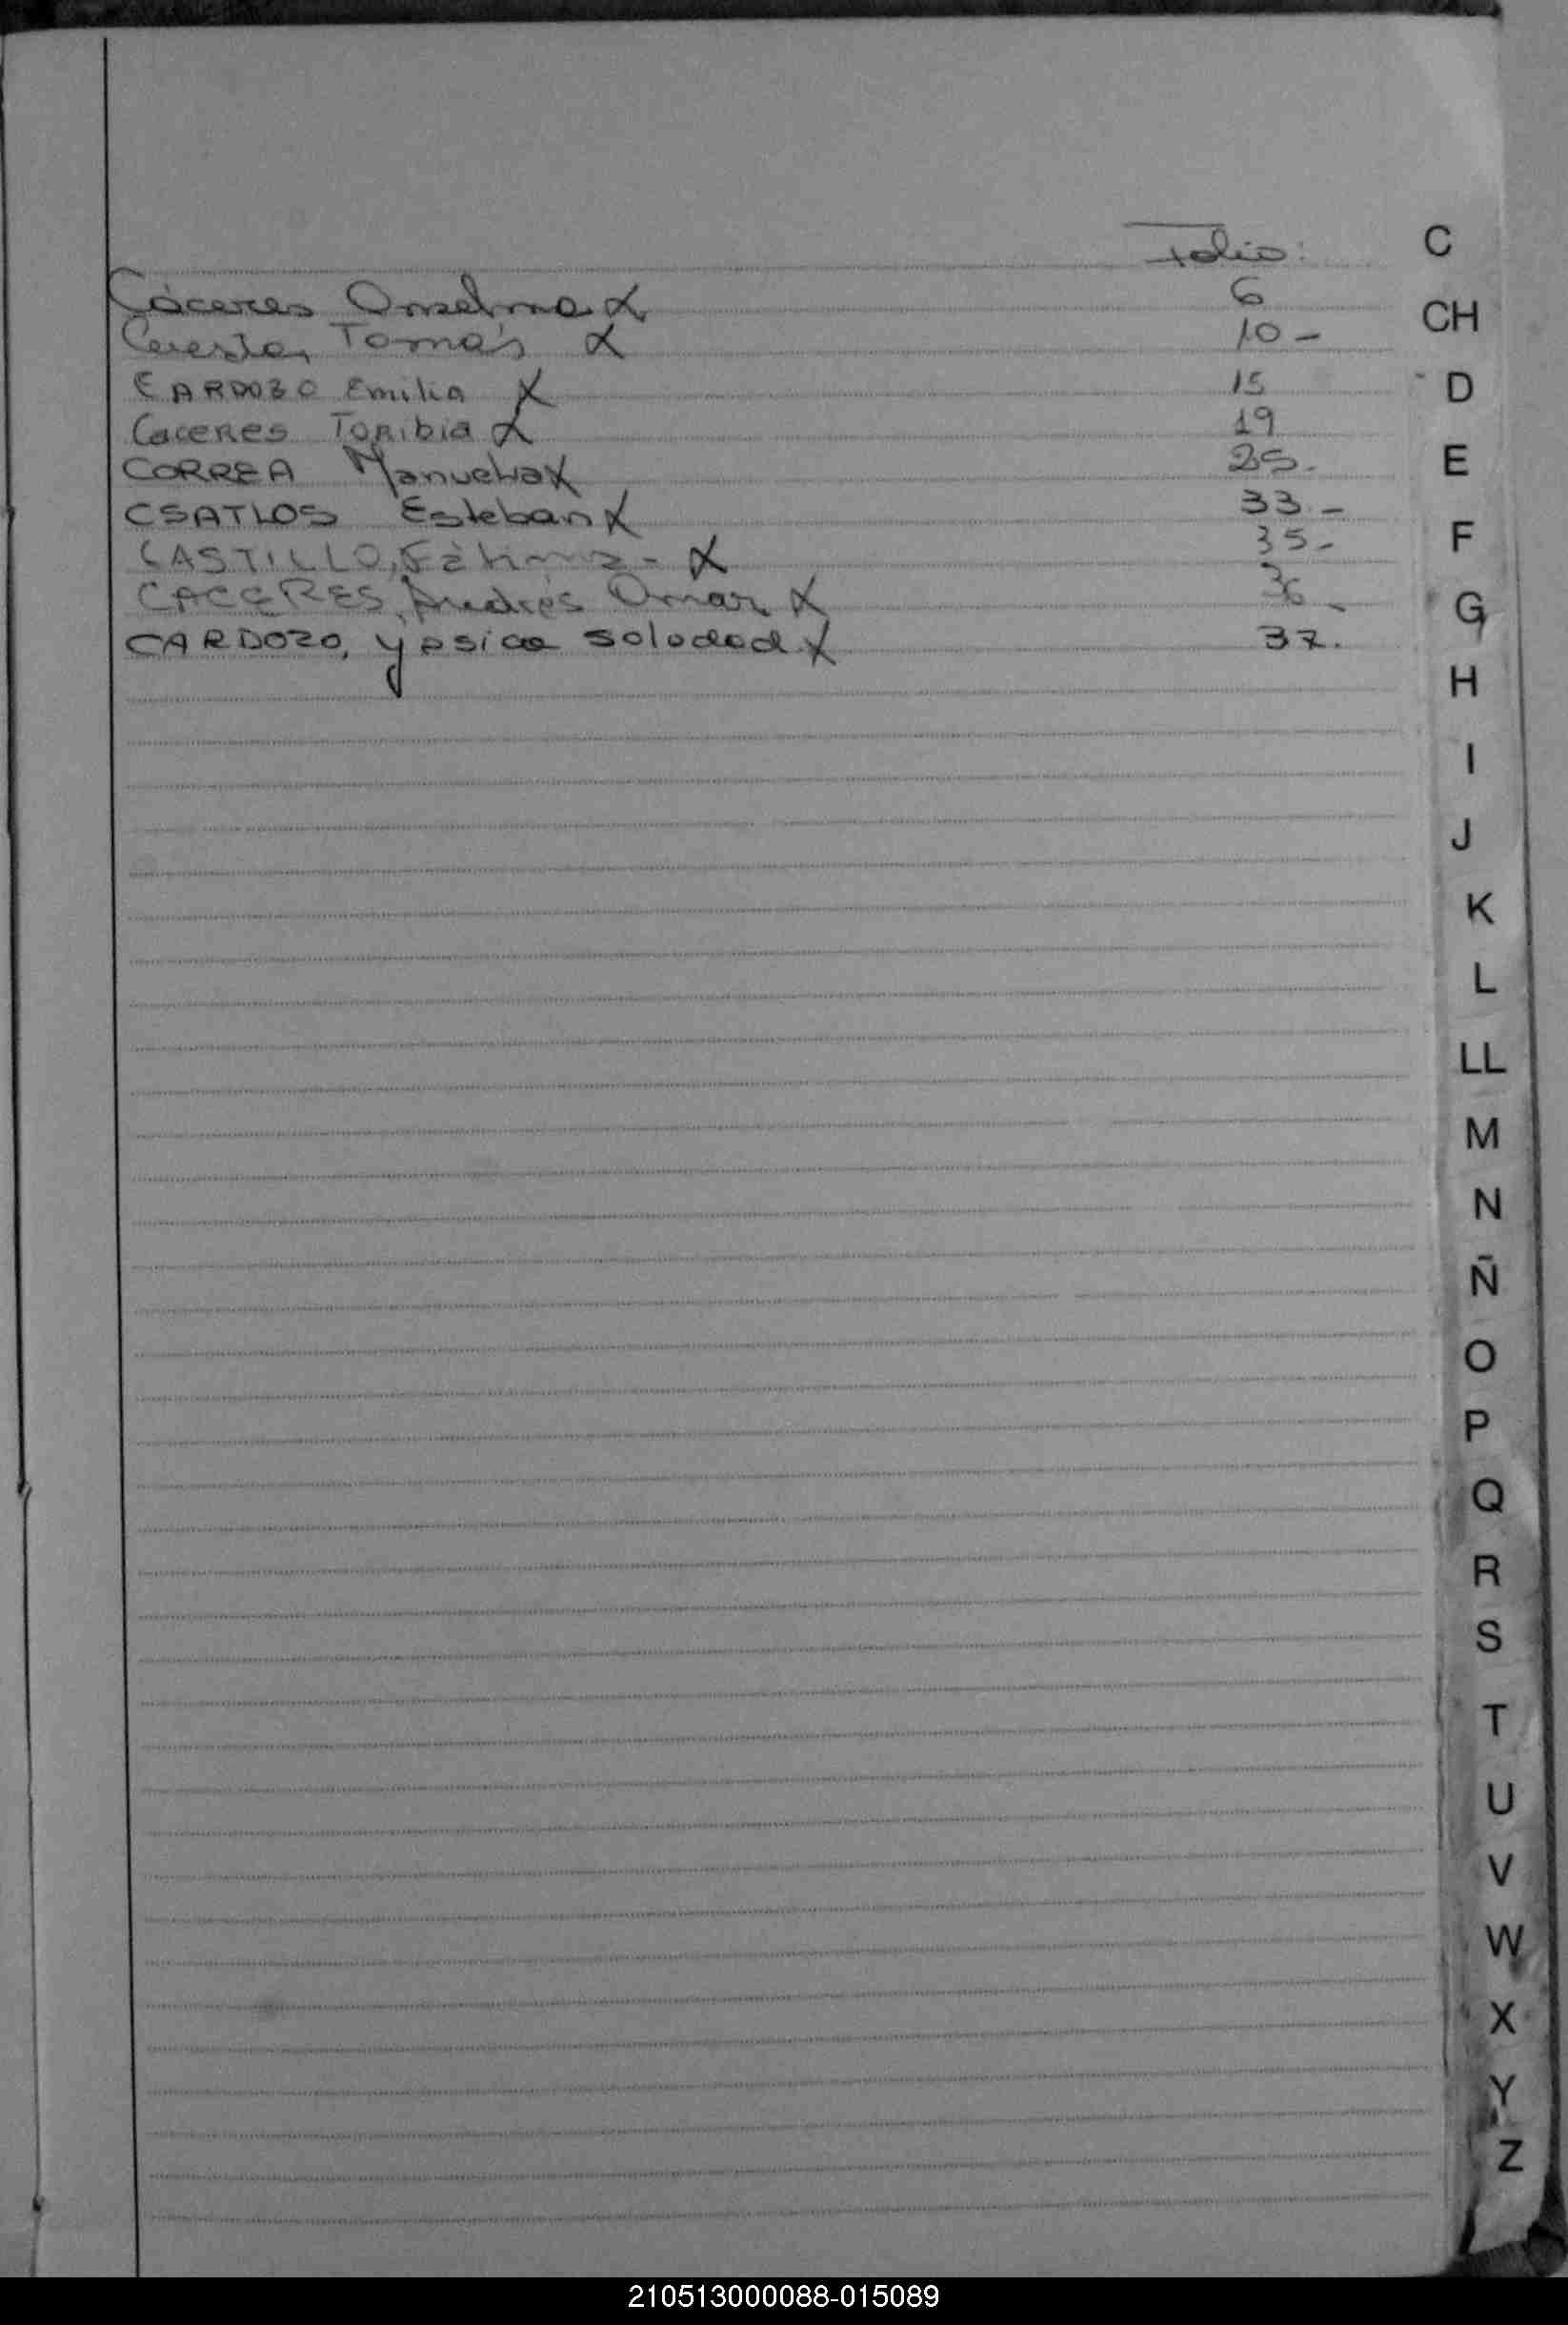 Folio:
Cáceres Anselma X 6
Tomás X 10-
CARDOZO Emilia X 15
Caceres Toribia X 19
CORREA Manuela X 25.
CSATLOS Esteban X 33-
CASTILLO, Fátima- X 35-
CACERES, Andrés Omar X 36-
CARDOZO, yesica soledad X 37.
C
CH
D
E
F
G
H
I
J
K
L
LL
M
N
Ñ
O
P
Q
R
S
T
U
V
W
X
Y
Z
210513000088-015089